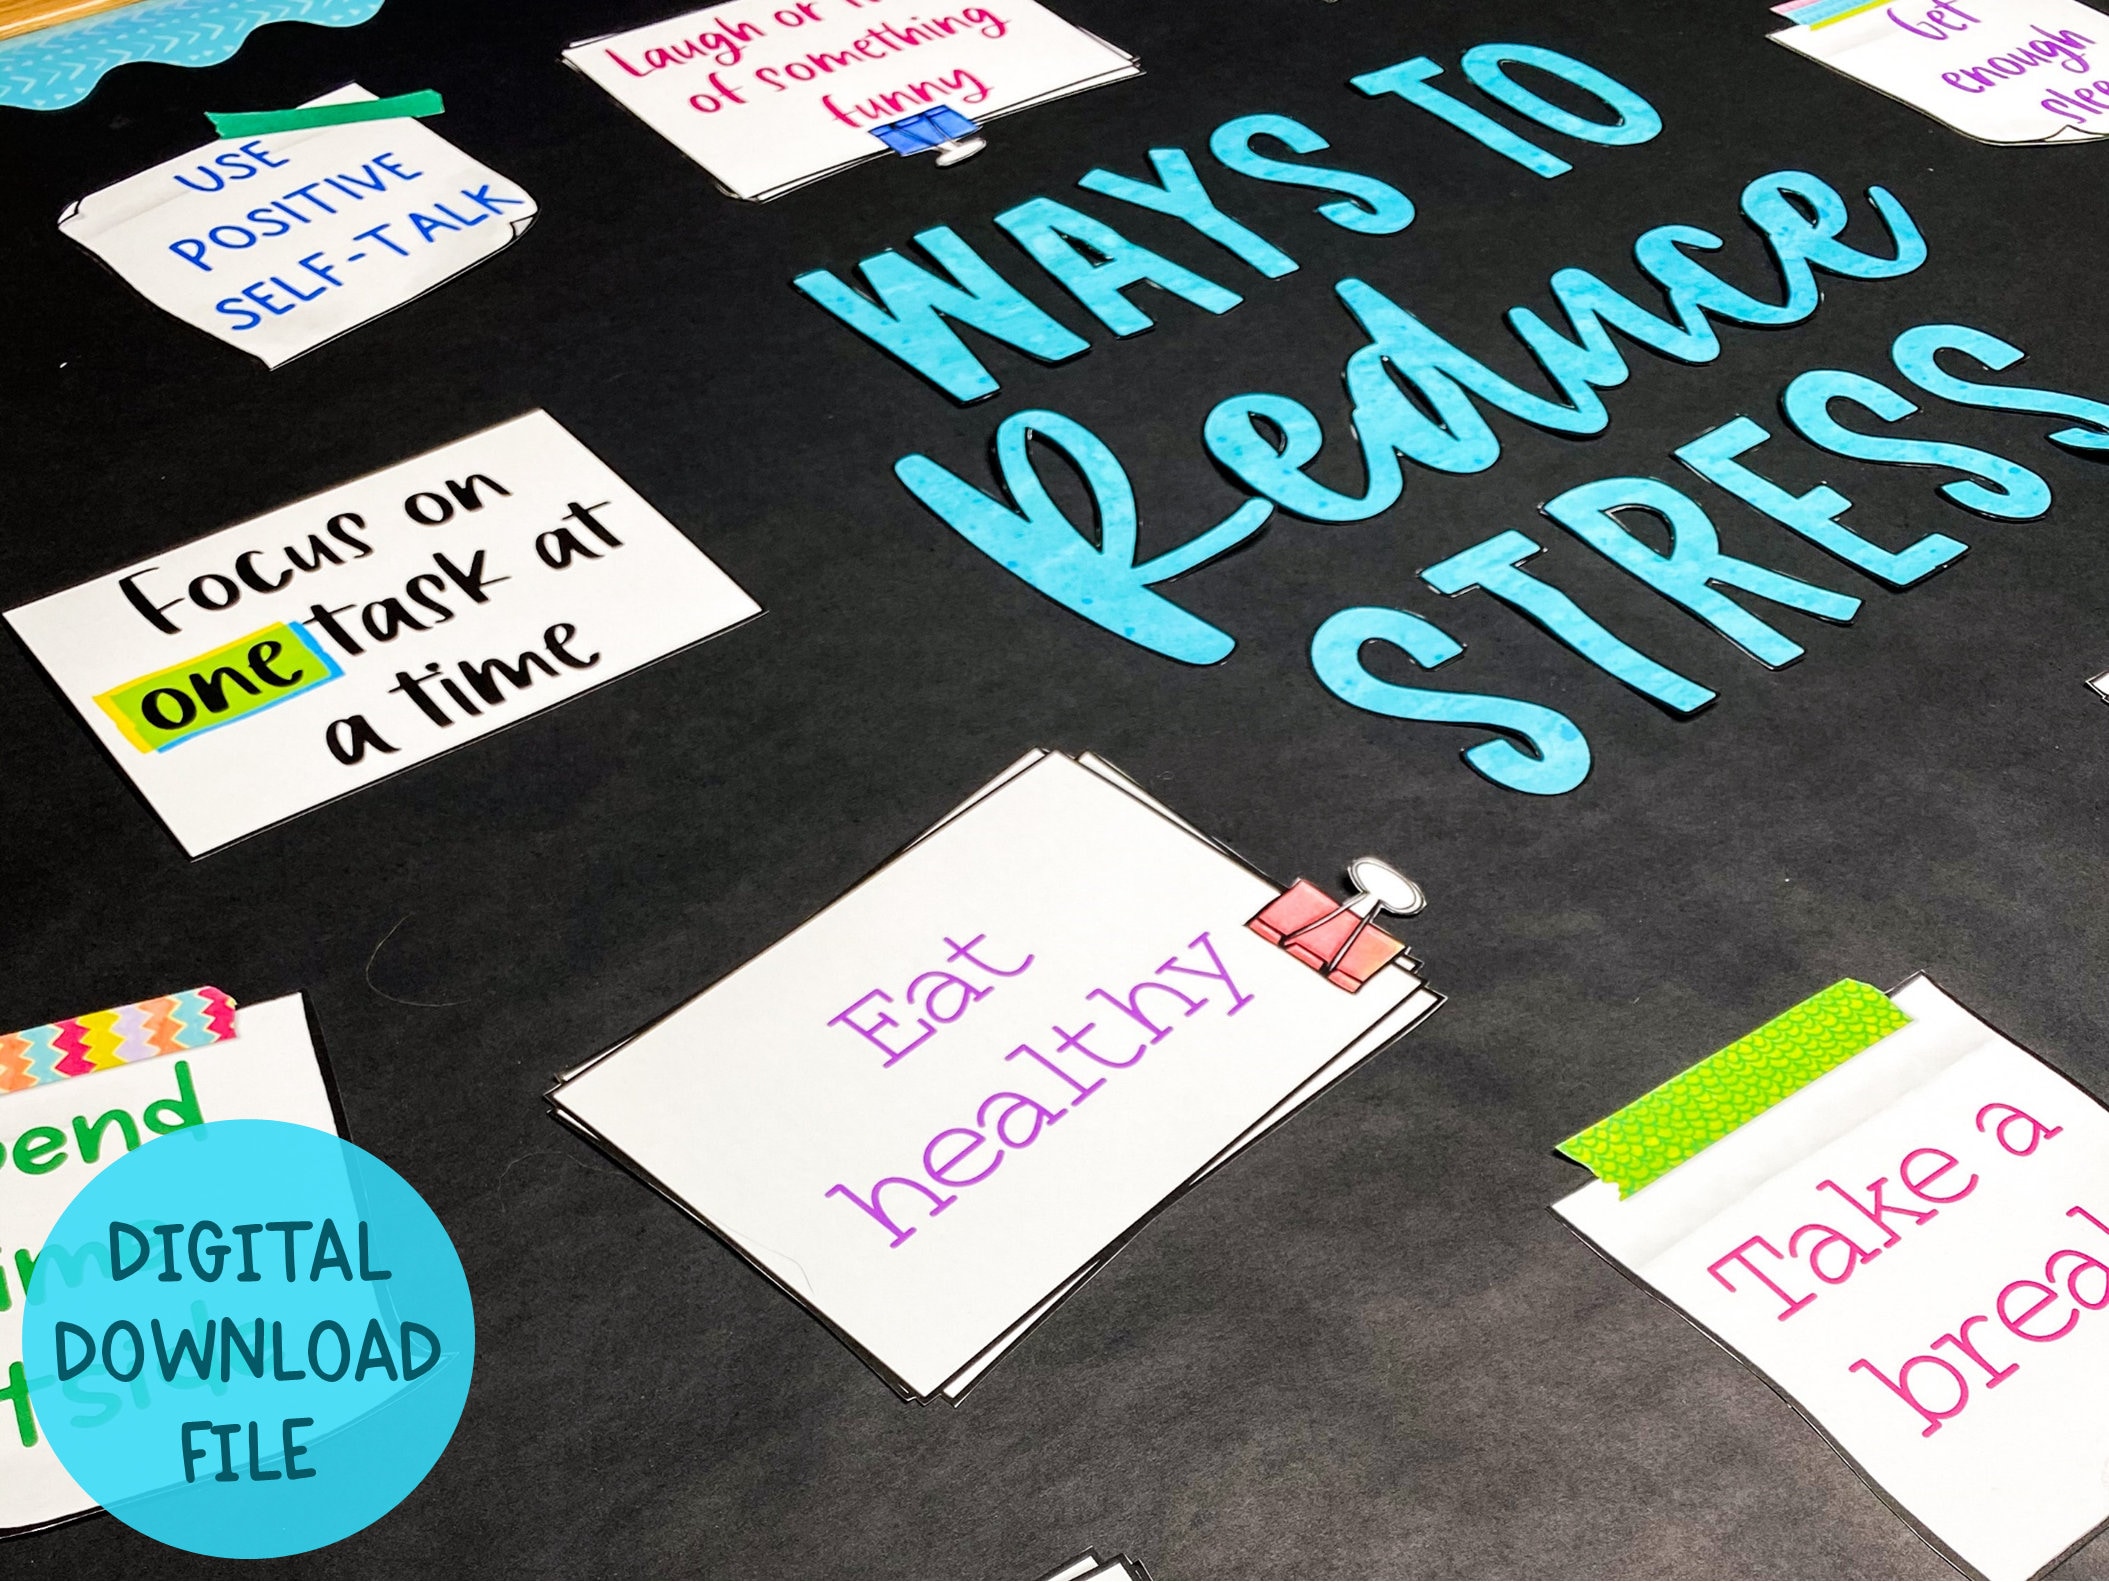 Laugh or
of something
funny
Get
enough
USE
POSITIVE
SELF-TALK
WAYS TO
Reduce
STRESS
Focus on
one task at
a time
Eat
healthy
Take a
DIGITAL
DOWNLOAD
FILE